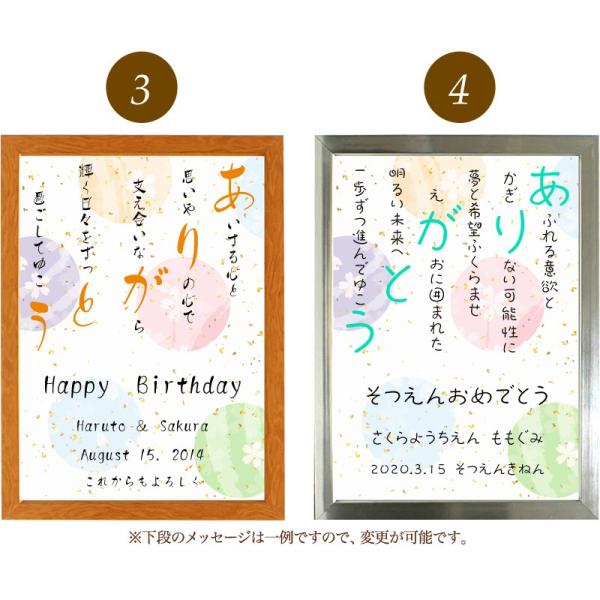 3
あいする心と
思いやりの心で
支え合いながら
輝く日々をずっと
過ごしてゆこう
Happy Birthday
Haruto & Sakura
August 15, 2014
これからもよろしく
4
あふれる意欲と
かぎりない可能性に
夢と希望ふくらませ
えがおに囲まれた
明るい未来へと
一歩ずつ進んでゆこう
そつえんおめでとう
さくらようちえん ももぐみ
2020.3.15 そつえんきねん
※下段のメッセージは一例ですので、変更が可能です。